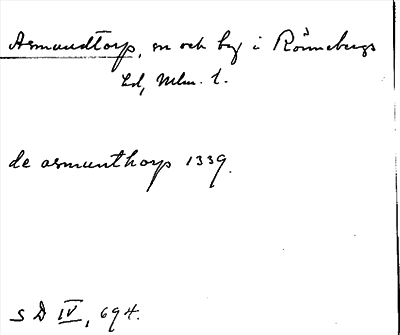 Asmundtorp, sn och by i Rönnebergs
hd, Mlm. l.
de asmunthorp 1339.
S D IV, 694.